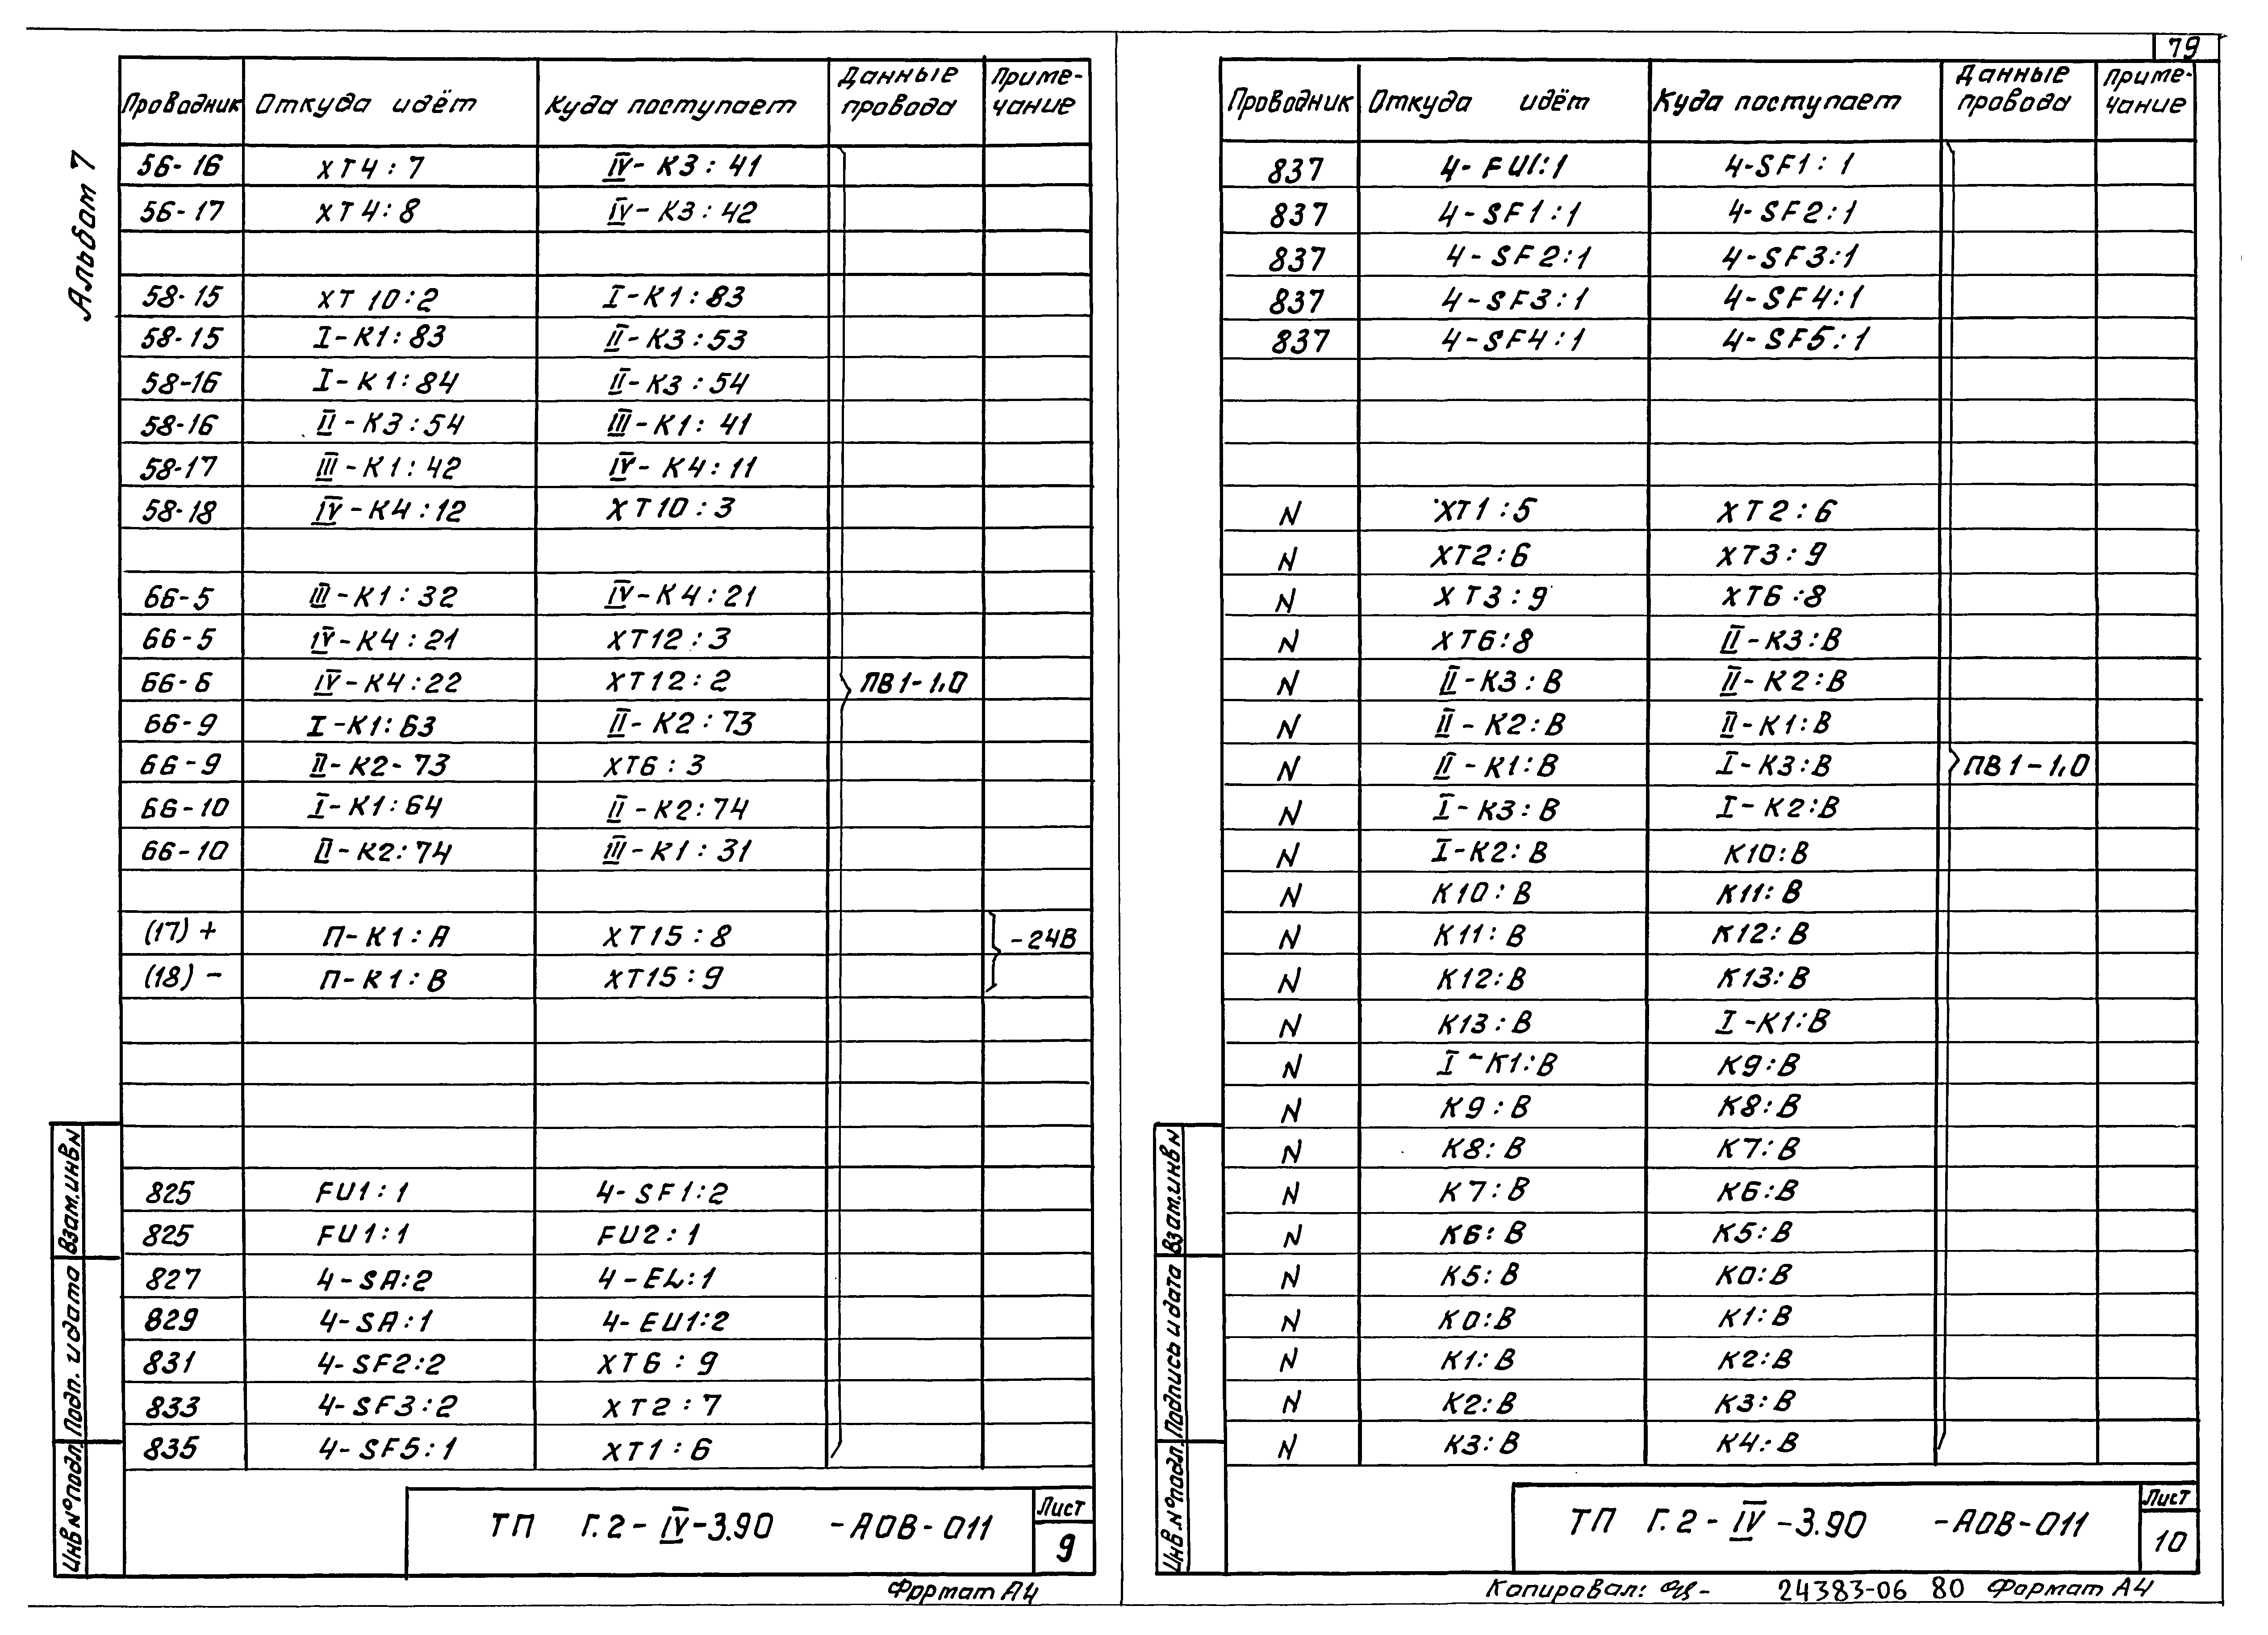 Альбом 7
Проводник Откуда идёт Куда поступает Данные провода Приме-чание
56-16 XT4:7 IV-K3:41
56-17 XT4:8 IV-K3:42
58-15 XT10:2 I-K1:83
58-15 I-K1:83 II-K3:53
58-16 I-K1:84 II-K3:54
58-16 II-K3:54 III-K1:41
58-17 III-K1:42 IV-K4:11
58-18 IV-K4:12 XT10:3
66-5 III-K1:32 IV-K4:21
66-5 IV-K4:21 XT12:3
66-6 IV-K4:22 XT12:2 ПВ1-1,0
66-9 I-K1:63 II-K2:73
66-9 II-K2-73 XT6:3
66-10 I-K1:64 II-K2:74
66-10 II-K2:74 III-K1:31
(17)+ П-K1:A XT15:8 -24В
(18)- П-K1:B XT15:9
825 FU1:1 4-SF1:2
825 FU1:1 FU2:1
827 4-SA:2 4-EL:1
829 4-SA:1 4-EU1:2
831 4-SF2:2 XT6:9
833 4-SF3:2 XT2:7
835 4-SF5:1 XT1:6
Инв.№подл. Подп. и дата Взам.инв№
ТП Г.2-IV-3.90 -АОВ-011
Лист
9
Формат А4
79
Проводник Откуда идёт Куда поступает Данные провода Приме-чание
837 4-FU1:1 4-SF1:1
837 4-SF1:1 4-SF2:1
837 4-SF2:1 4-SF3:1
837 4-SF3:1 4-SF4:1
837 4-SF4:1 4-SF5:1
N XT1:5 XT2:6
N XT2:6 XT3:9
N XT3:9 XT6:8
N XT6:8 II-K3:B
N II-K3:B II-K2:B
N II-K2:B II-K1:B
N II-K1:B I-K3:B ПВ1-1,0
N I-K3:B I-K2:B
N I-K2:B K10:B
N K10:B K11:B
N K11:B K12:B
N K12:B K13:B
N K13:B I-K1:B
N I-K1:B K9:B
N K9:B K8:B
N K8:B K7:B
N K7:B K6:B
N K6:B K5:B
N K5:B K0:B
N K0:B K1:B
N K1:B K2:B
N K2:B K3:B
N K3:B K4:B
Инв.№подл. Подпись и дата Взам.инв№
ТП Г.2-IV-3.90 -АОВ-011
Лист
10
Копировал: 24383-06 80 Формат А4